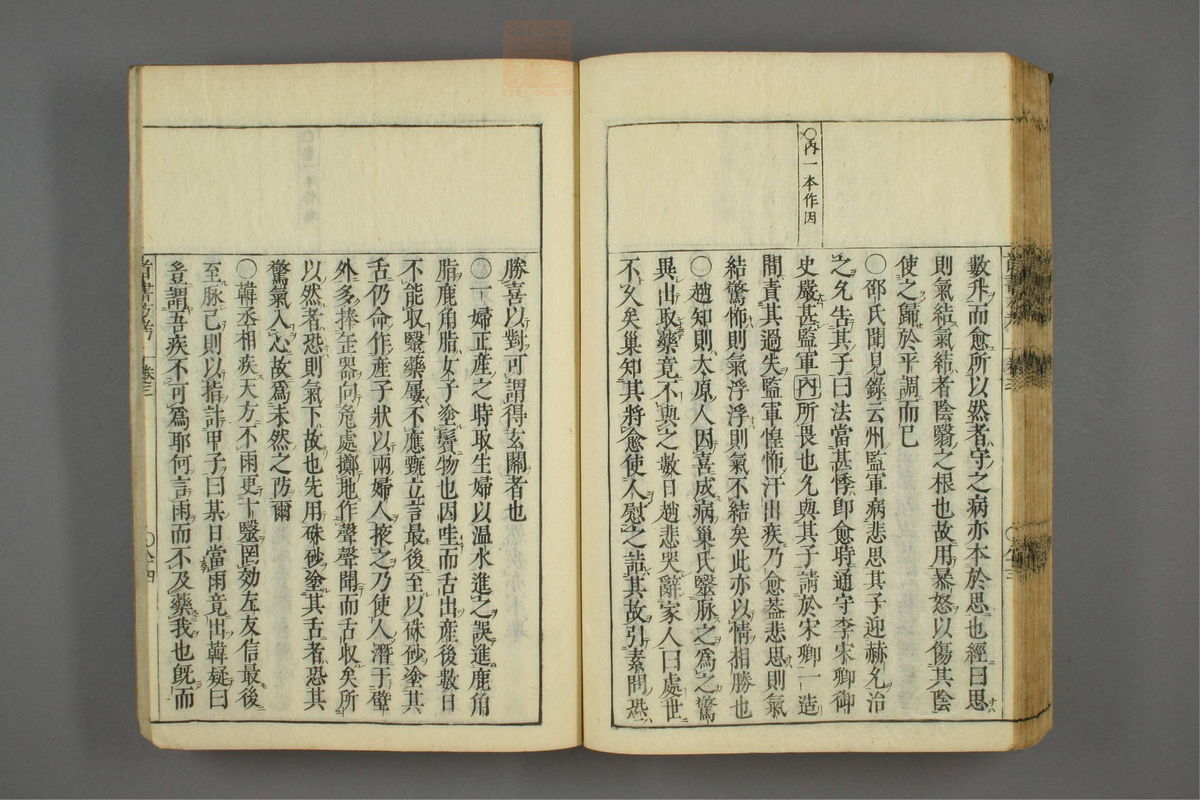 ○內一本作因
數升而愈所以然者守之病亦本於思也經曰思
則氣結氣結者陰翳之根也故用暴怒以傷其陰
使之歸於平調而已
○邵氏聞見錄云州監軍病悲思其子迎赫允治
之允告其子曰法當甚悸卽愈時通守李宋卿御
史嚴甚監軍內所畏也允與其子請於宋卿一造
間責其過失監軍惶怖汗出疾乃愈蓋悲思則氣
結驚怖則氣浮浮則氣不結矣此亦以情相勝也
○趙知則太原人因喜成病巢氏醫脉之爲之驚
異出取藥竟不與之數日趙悲哭辭家人曰處世
不久矣巢知其將愈使人慰之詰其故引素問恐
勝喜以對可謂得玄關者也
○一婦正產之時取生婦以溫水進之誤進鹿角
脂鹿角脂女子塗鬢物也因哇而舌出產後數日
不能收醫藥屢不應甄立言最後至以硃砂塗其
舌仍命作產子狀以兩婦人掖之乃使人潛于壁
外多捧缶器向危處擲地作聲聲聞而舌收矣所
以然者恐則氣下故也先用硃砂塗其舌者恐其
驚氣入心故爲未然之防爾
○韓丞相疾天方不雨更十醫罔効左友信最後
至脉已則以指計甲子曰某日當雨竟出韓疑曰
豈謂吾疾不可爲耶何言雨而不及藥我也旣而
醫書方考 卷三
○六十四